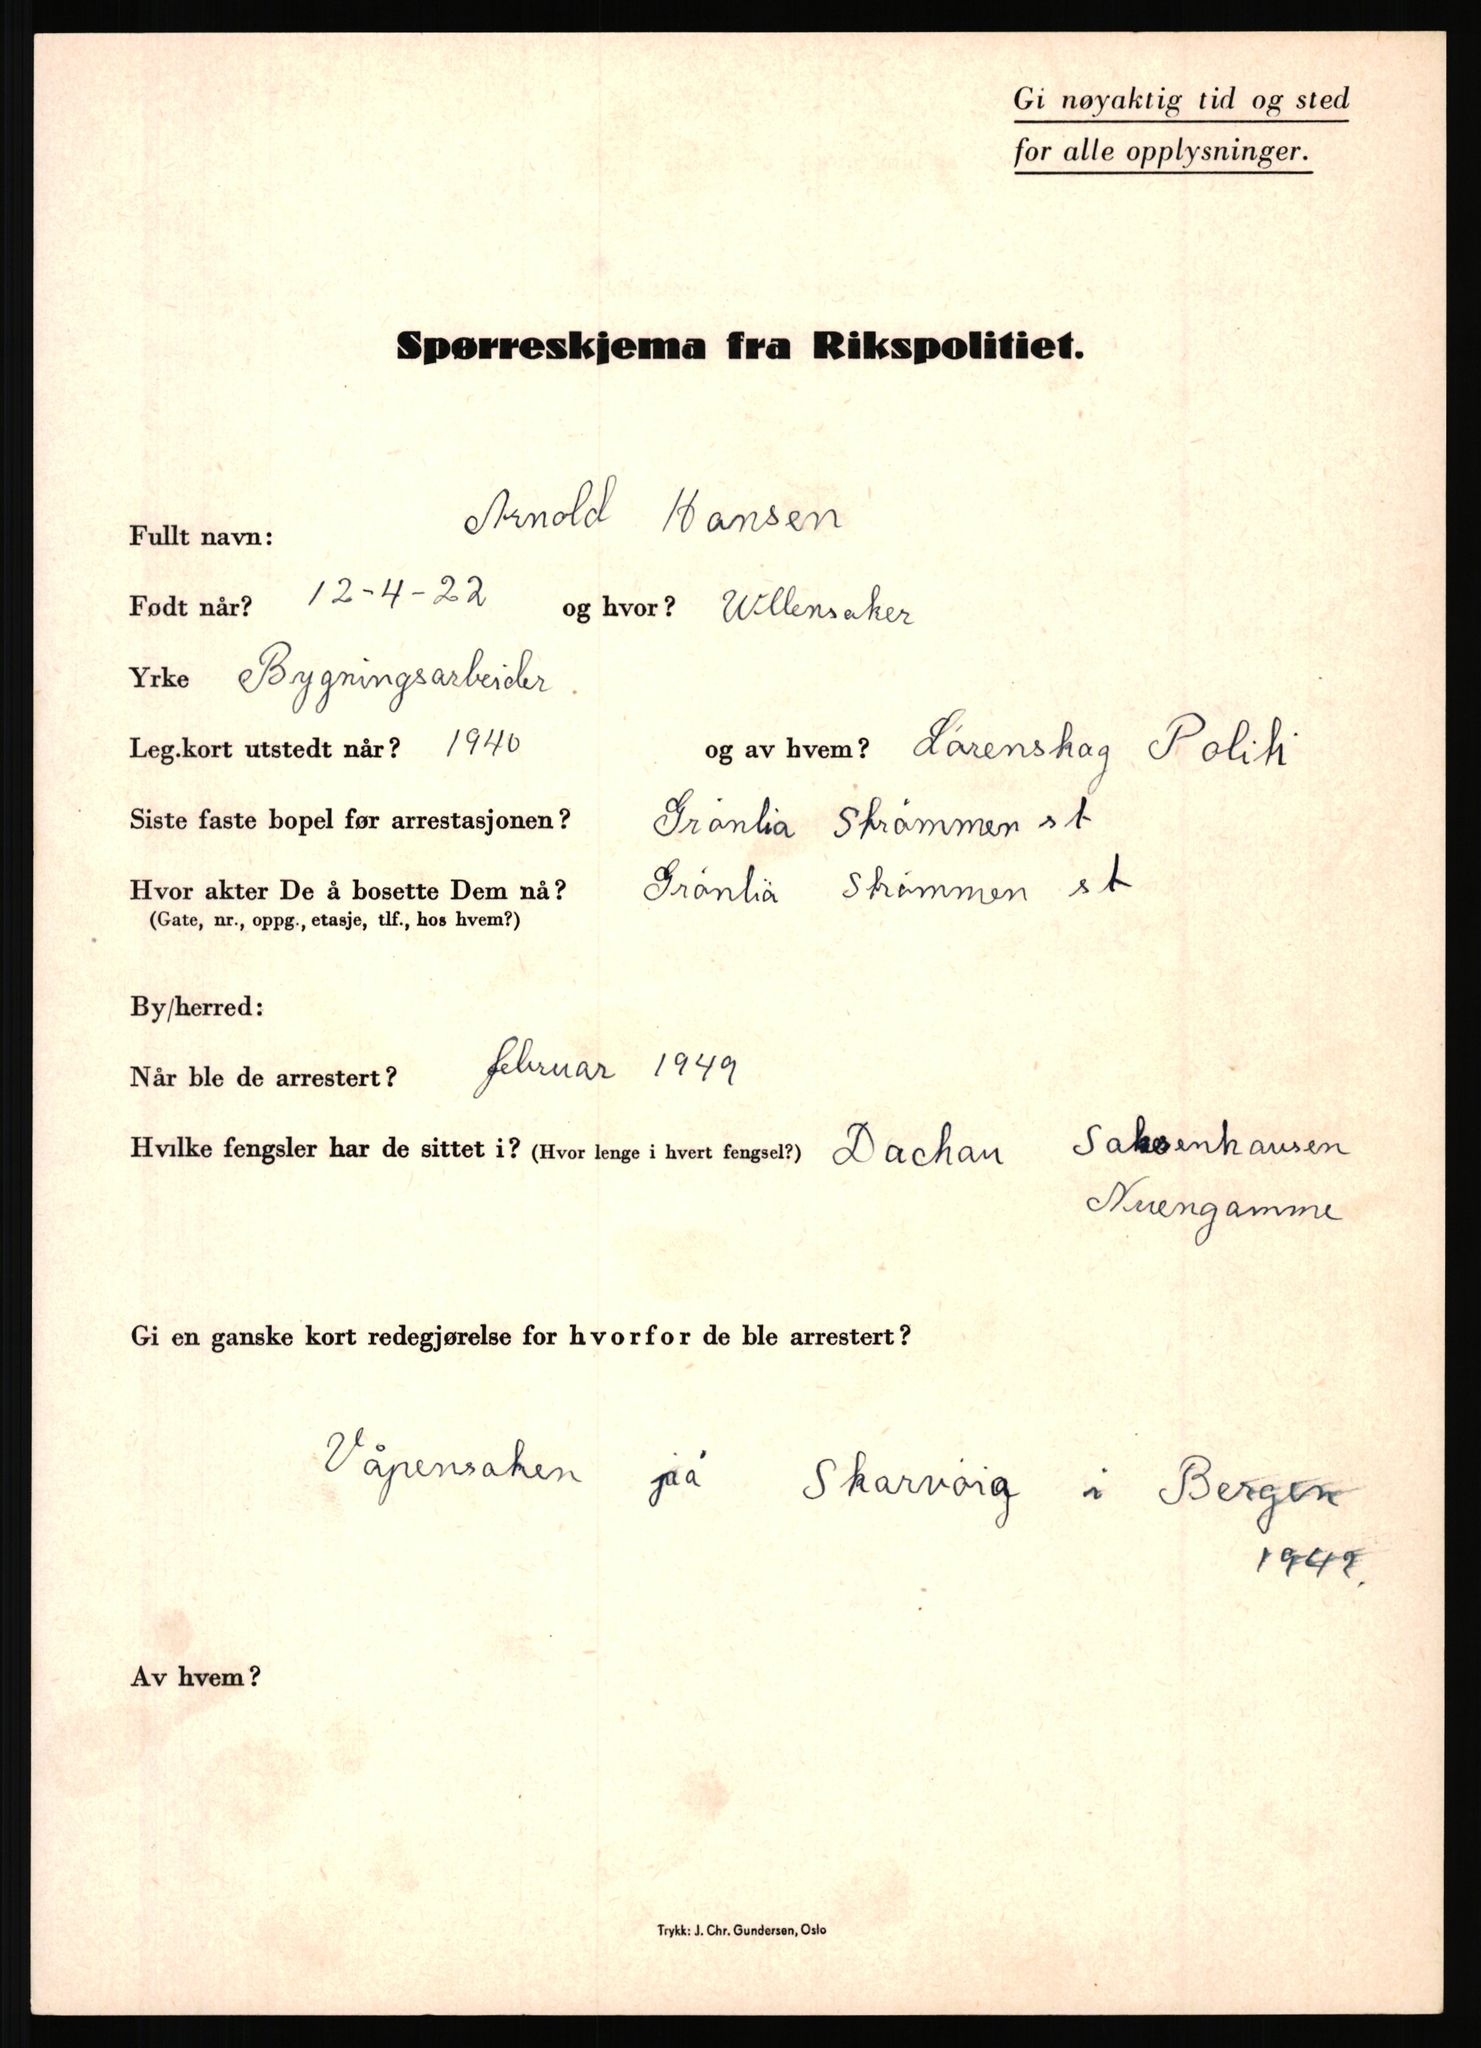 Gi nøyaktig tid og sted
for alle opplysninger.
Spørreskjema fra Rikspolitiet.
Fullt navn: Arnold Hansen
Født når? 12-4-22 og hvor? Ullensaker
Yrke Bygningsarbeider.
Leg.kort utstedt når? 1940 og av hvem? Lörenskag Politi
Siste faste bopel før arrestasjonen? Grönlia Strömmen st
Hvor akter De å bosette Dem nå? Grönlia Strömmen st
(Gate, nr., oppg., etasje, tlf., hos hvem?)
By/herred:
Når ble de arrestert? februar 1949
Hvilke fengsler har de sittet i? (Hvor lenge i hvert fengsel?) Dachau Saksenhausen
Nuengamme
Gi en ganske kort redegjørelse for hvorfor de ble arrestert?
Våpensaken på Skarvöig i Bergen
194
Av hvem?
Trykk: J. Chr. Gundersen, Oslo